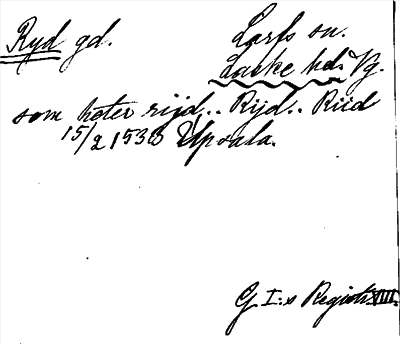 Ryd gd. Larfs sn.
Laske hd. Vg.
som heter rijd.. Rijd.. Riid
15/2 1538 Upsala.
G I:s Registr. VIII.